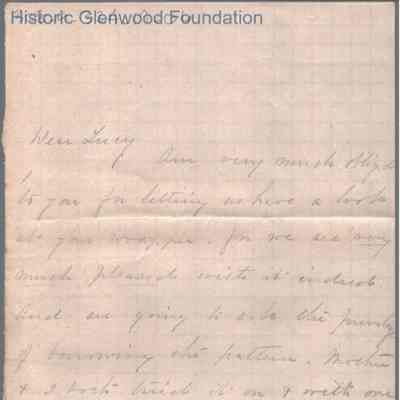 Historic Glenwood Foundation
Dear Lucy
Am very much oblig'd
to you for letting us have a look
at your wrapper. for we are very
much pleased with it indeed
and are going to ask the
of borrowing the pattern. Mother
& I both tried it on & with one